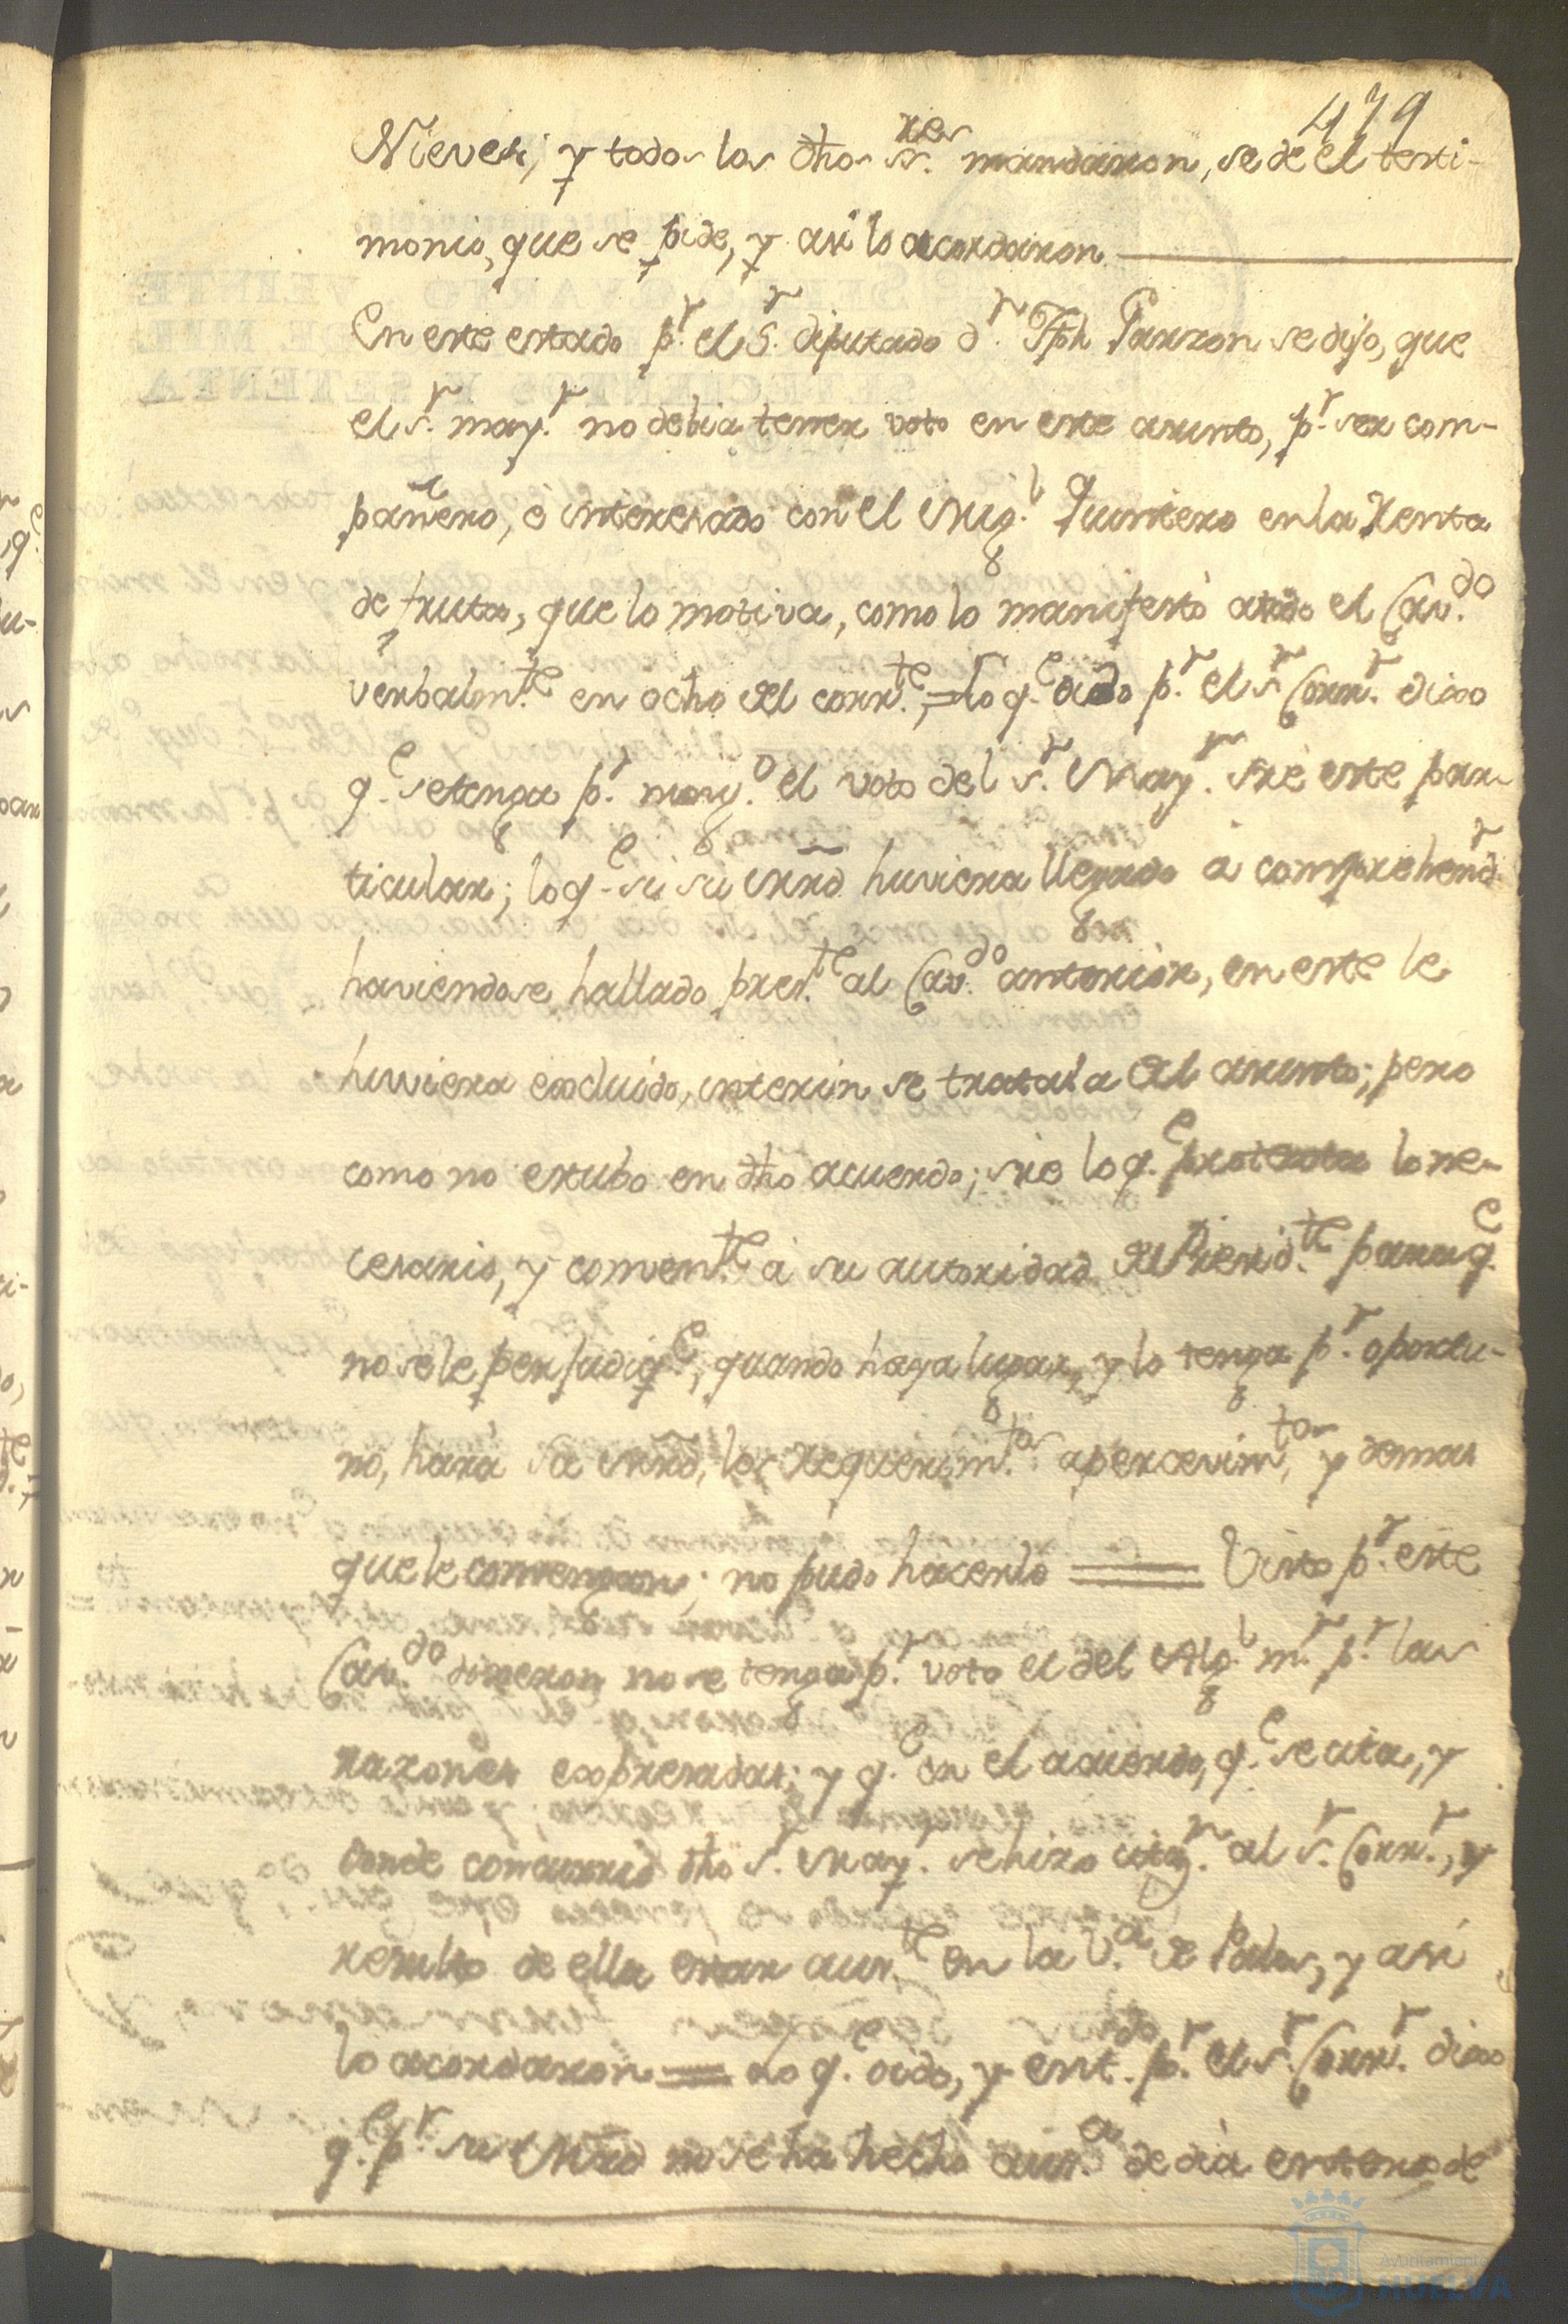 479
Nieves; y todos los dhos s.res mandaron, se dè el testi-
monio, que se pide, y asi lo acordaron
En este estado p.r el S.r diputado d.n Jph Garzon se dijo, que
el s.r may.r no debia tener voto en este asunto, p.r ser com-
pañero, è interesado con el Mig.l Quintero en la Renta
de frutos, que lo motiva, como lo manifestò a todo el Cav.do
verbalm.te en ocho del corr.te = lo q.e oido p.r el s.r Corr.r dixo
q.e se tenga p.r nong.o el voto del s.r May.r sre este par-
ticular; lo q.e si su Mrd huviera llegado à comprehend.r
haviendose hallado pres.te al Cav.do anterior, en este le
huviera excluido, interin se trataba del asunto; pero
como no estubo en dho acuerdo; sre lo q.e protesta lo ne-
cesario, y conven.te à su autoridad de Presid.te para q.e
no se le perjudiq.e, quando haya lugar, y lo tenga p.r oportu-
no, harà su Mrd, los requerim.tos apercevim.tos, y demas
que le convengan; no pudo hacerlo = Visto p.r este
Cav.do dixeron no se tenga p.r voto el del Alg.l m.r p.r las
razones expresadas; y q.e en el acuerdo, q.e se cita, y
donde concurrió dho s.r May.r se hizo citaz.n al s.r Corr.r, y
resultò de ella estar aus.te en la V.a de Palos, y asi
lo acordaron = Lo q.e oido, y ent.do p.r el s.r Corr.r dixo
q.e p.r su Mrd no se ha hecho aus.a de dia entero de
Ayuntamiento
HUELVA